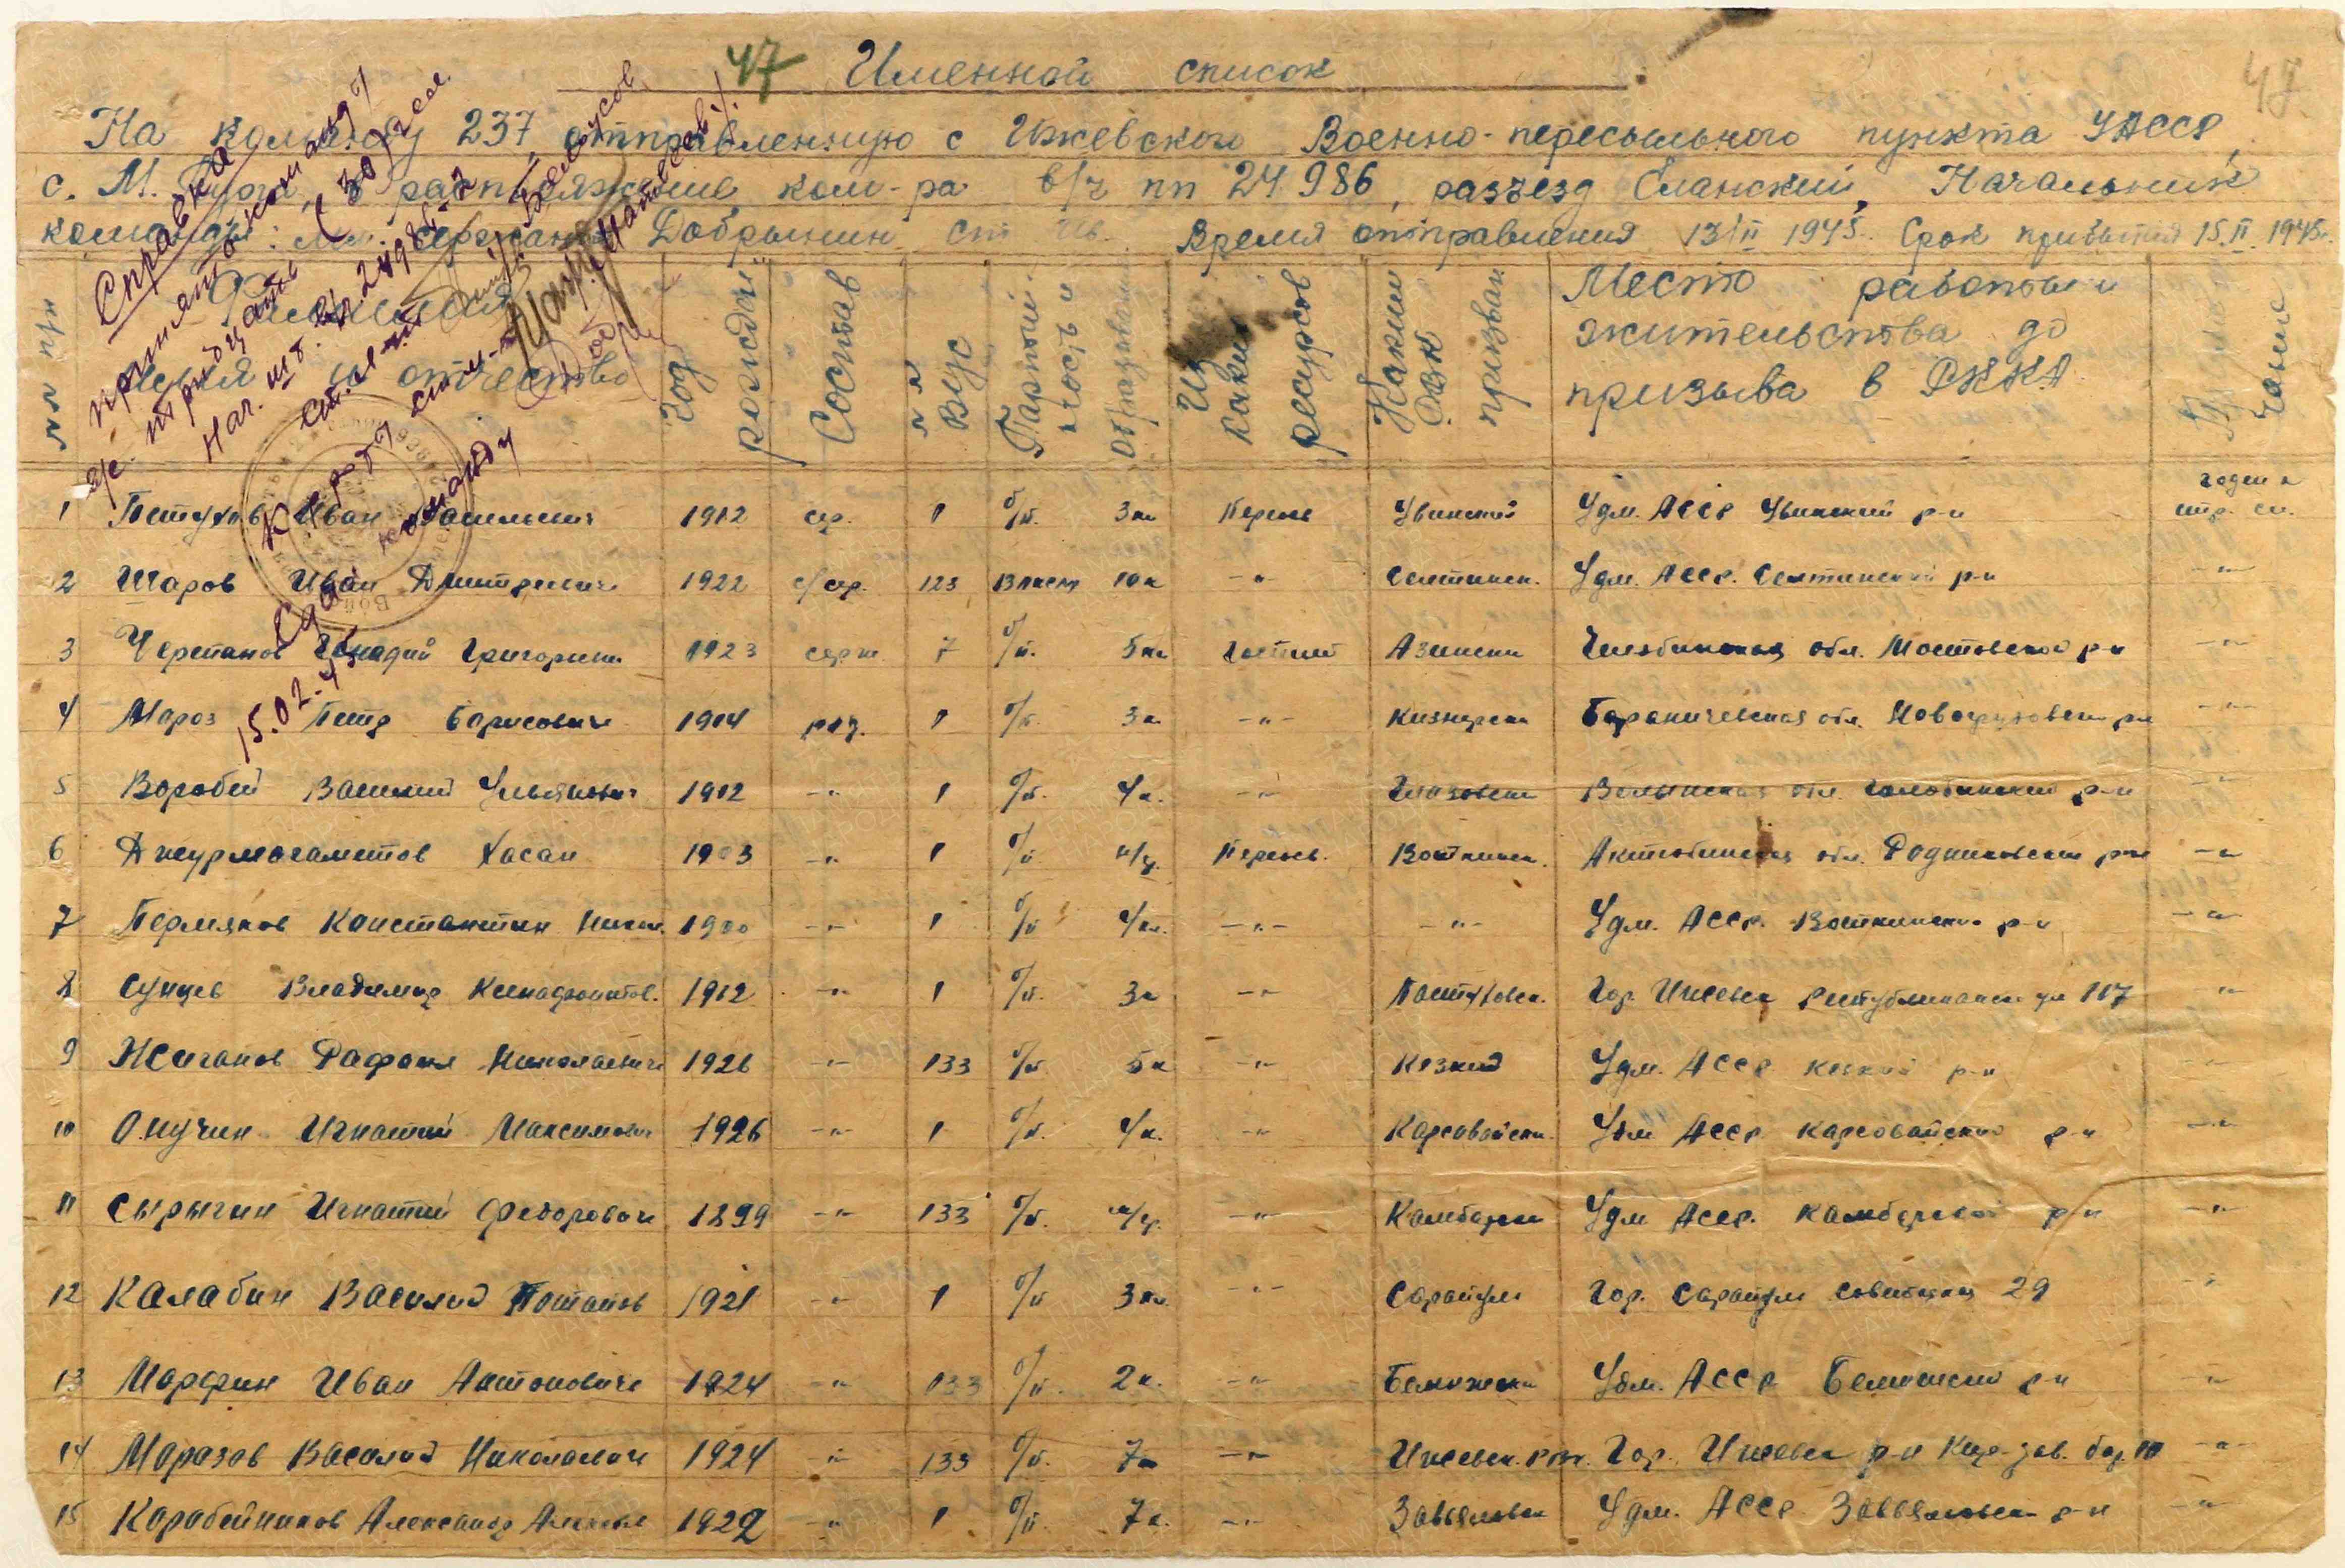 47
Именной список
47
На команду 237, отправленную с Ижевского Военно-пересыльного пункта УАССР,
с. М. Пурга, в распоряжение ком-ра в/ч пп 24986, разъезд Еланский, Начальник
команды: мл. сержант Добрынин Время отправления 13/II 1945 Срок прибытия 15.II. 1945г.
Справка
принято команду
тридцать (30) чел
Нач. шт. 24986
ст. л-т Белоусов
Сдал команду
15.02.45
№№ п/п
Фамилия имя и отчество
Год рождения
Состав
№№ ВУС
Партийность и
образование
Из каких ресурсов
Каким РВК призван
Место работы и жительства до призыва в РККА
Примечание
1 Петухов Иван Васильевич 1912 сер. 1 б/п. 3 кл Перех Увинский Удм. АССР Увинский р-н годен к стр. сл.
2 Шаров Иван Дмитриевич 1922 с/сер. 123 ВЛКСМ 10 к -"- Селтинск. Удм. АССР. Селтинский р-н -"-
3 Черепанов Генадий Григорьевич 1923 серж. 7 б/п. 5 кл Азински Челябинская обл. Мостовской р-н -"-
4 Мороз Петр Борисович 1904 ряд. 1 б/п. 3 к. -"- Кизнерски Бараничевская обл. р-н -"-
5 Воробей Василий Ульянович 1912 -"- 1 б/п. 4 к. -"- Глазовски Волынская обл. р-н -"-
6 Джурмагаметов Хасан 1903 -"- 1 б/п н/г. Перех. Воткинск. Актюбинская обл. Родниковский р-н -"-
7 Пермяков Константин Никол. 1900 -"- 1 б/п 4 кл. -"- -"- Удм. АССР. Воткински р-н -"-
8 Сунцев Владимир Ксенафонтов. 1912 -"- 1 б/п. 3 к -"- Пастуховск. Гор. Ижевск Республиканск ул 117 -"-
9 Жиганов Рафаил Николаевич 1926 -"- 133 б/п. 5 к -"- Кезкий Удм. АССР Кезкий р-н -"-
10 Онучин Игнатий Максимович 1926 -"- 1 б/п. 4 к. -"- Карсовайски. Удм АССР Карсовайский р-н -"-
11 Сырыгин Игнатий Федорович 1899 -"- 133 б/п. н/г. -"- Камбарски Удм АССР. Камбарский р-н -"-
12 Калабин Василий Потапов 1921 -"- 1 б/п 3 кл. -"- Сарапул Гор. Сарапул Советская 29 -"-
13 Марфин Иван Антонович 1924 -"- 133 б/п. 2 к. -"- Бемижски Удм. АССР Бемижский р-н -"-
14 Марозов Василий Николаевич 1924 -"- 133 б/п. 7 к -"- Ижевск. Гор. Ижевск р-н Кир-зав. бар 10 -"-
15 Карабейников Александр 1922 -"- 1 б/п. 7 к. -"- Завьяловск Удм. АССР Завьяловск р-н -"-